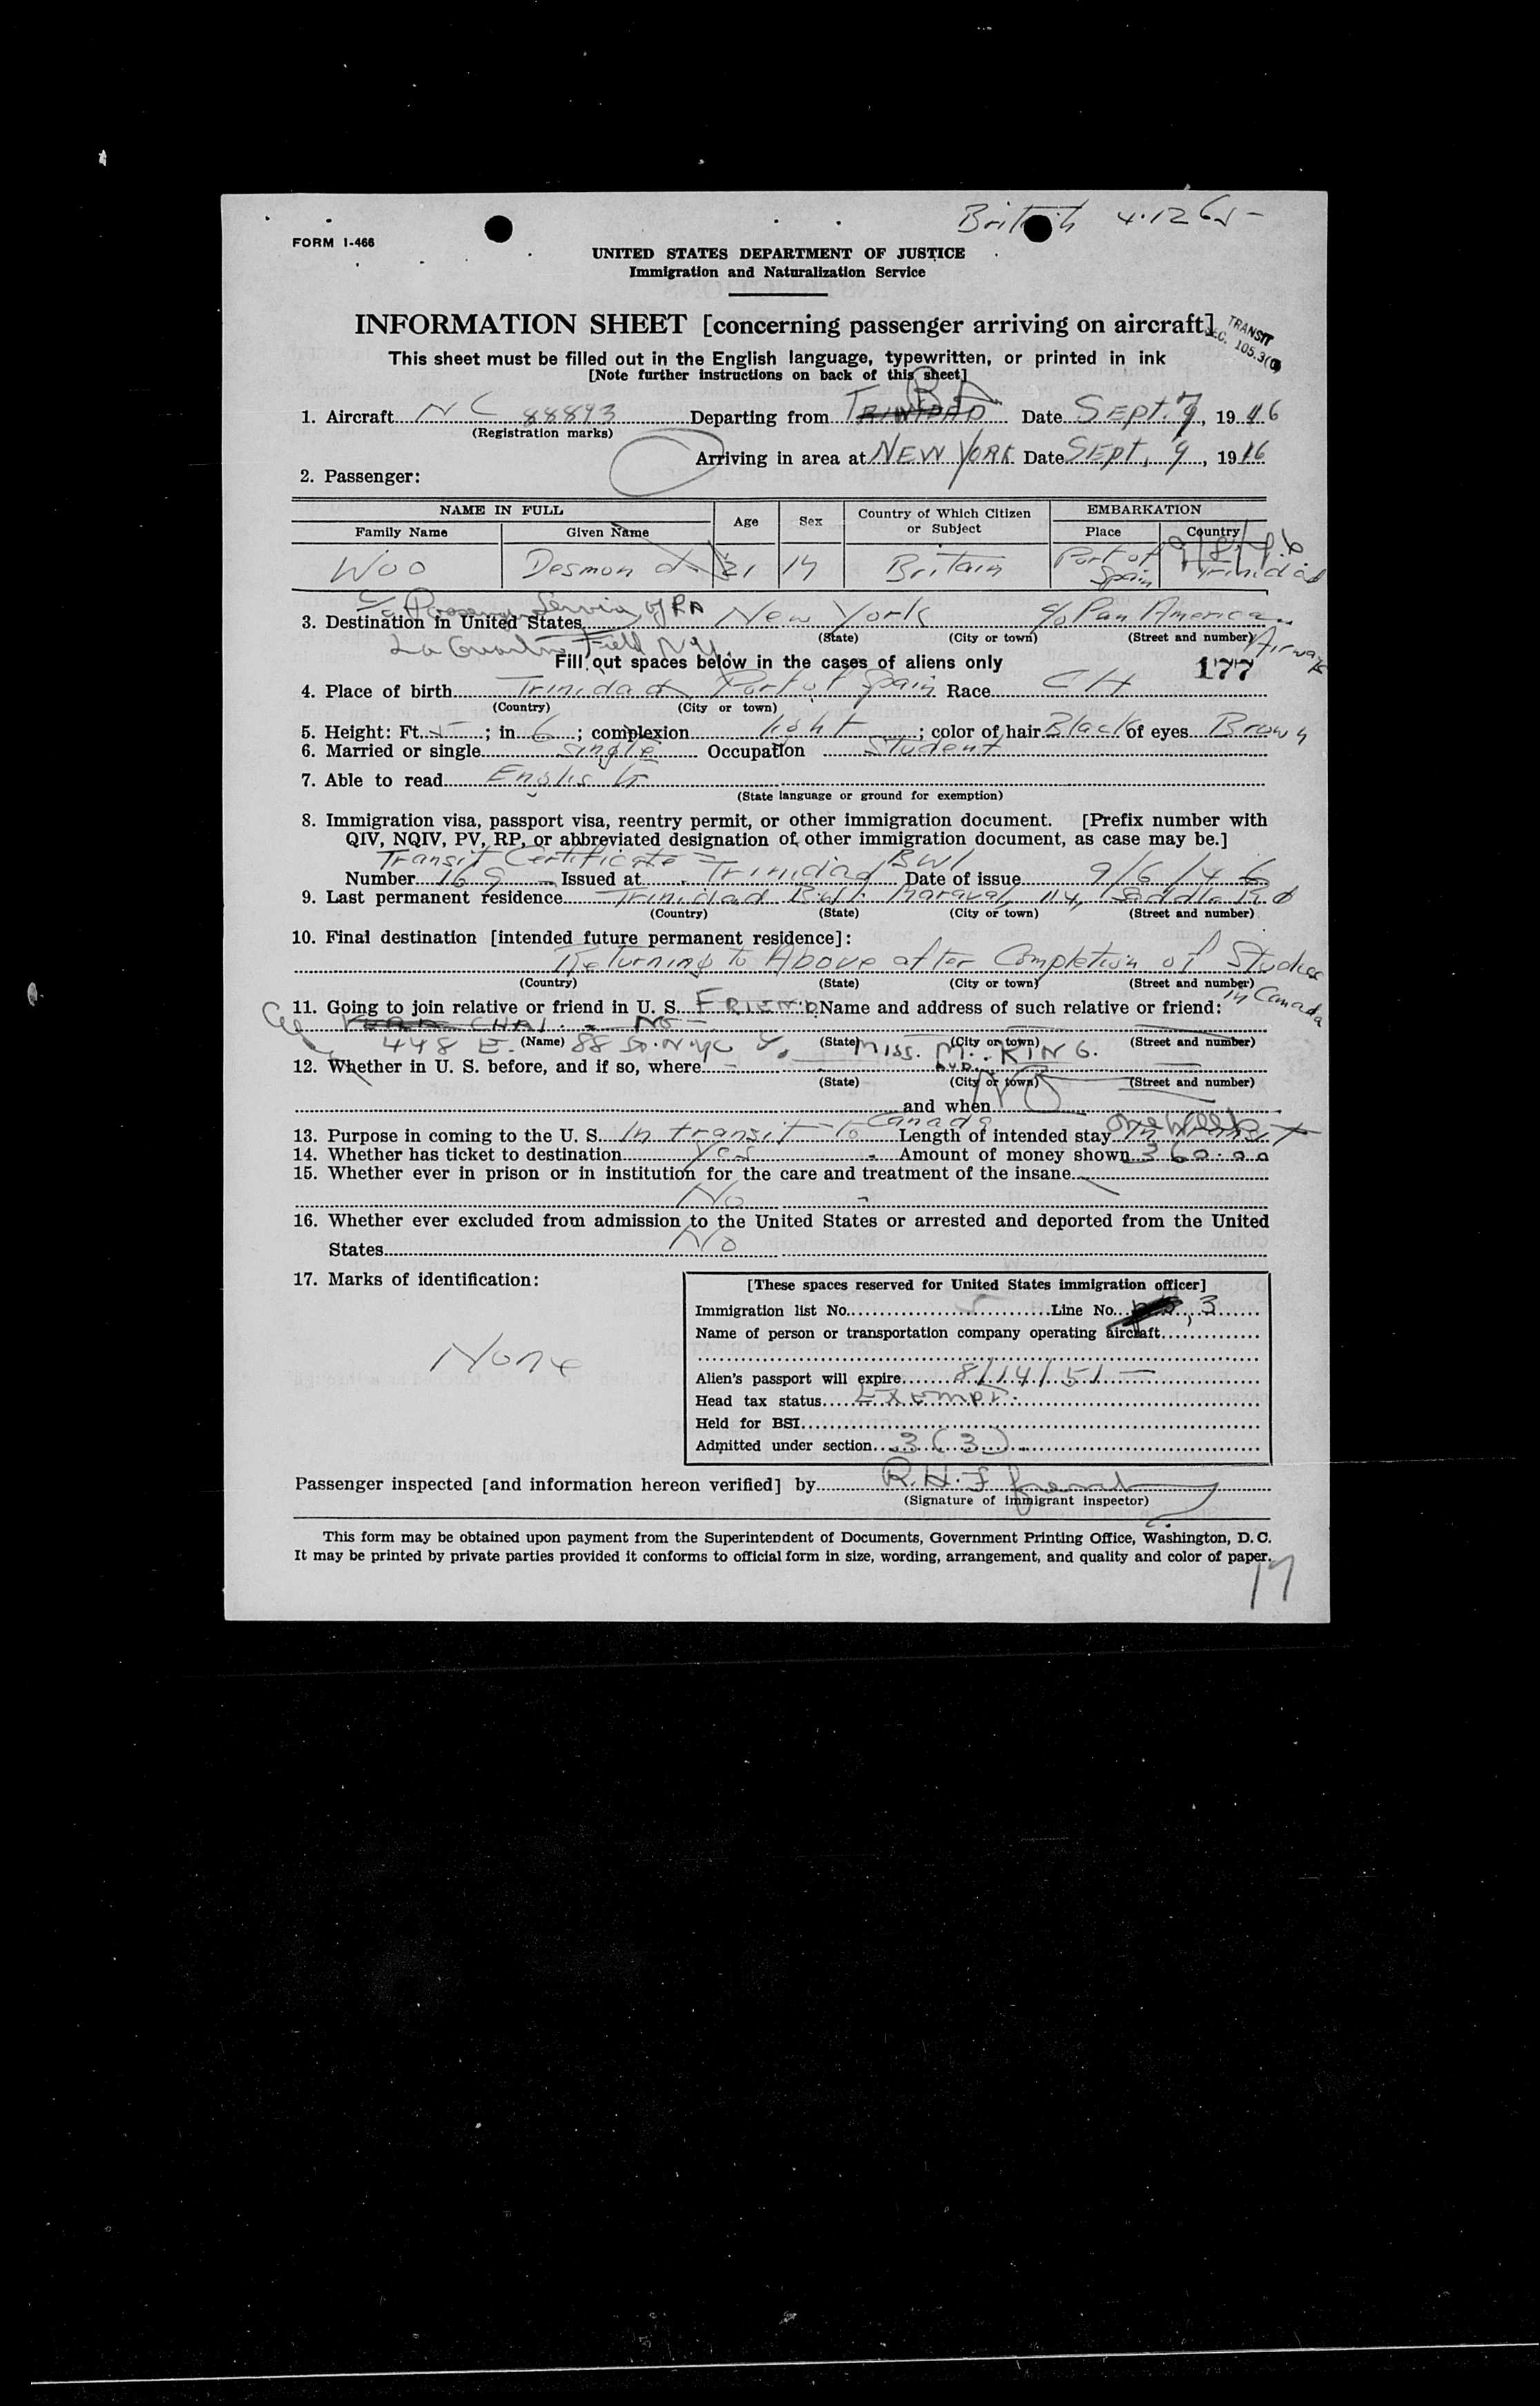 British 4.1265-
FORM I-466
UNITED STATES DEPARTMENT OF JUSTICE
Immigration and Naturalization Service
INFORMATION SHEET [concerning passenger arriving on aircraft]
TRANSIT
SEC. 105.3(
This sheet must be filled out in the English language, typewritten, or printed in ink
[Note further instructions on back of this sheet]
1. Aircraft NC 88893 Departing from TRINIDAD BA Date Sept. 9, 1946
(Registration marks)
Arriving in area at NEW YORK Date Sept. 9, 1946
2. Passenger:
NAME IN FULL Age Sex Country of Which Citizen or Subject EMBARKATION
Family Name Given Name Place Country
9/8/46
Woo Desmond 21 M Britain Port of Spain Trinidad
c/o Passenger Service of PA
3. Destination in United States New York c/o Pan American Airways
(State) (City or town) (Street and number)
La Guardia Field N.Y.
Fill out spaces below in the cases of aliens only 177
4. Place of birth Trinidad Port of Spain Race CH
(Country) (City or town)
5. Height: Ft. 5; in 6; complexion light; color of hair Black of eyes Brown
6. Married or single Single Occupation Student
7. Able to read English
(State language or ground for exemption)
8. Immigration visa, passport visa, reentry permit, or other immigration document. [Prefix number with
QIV, NQIV, PV, RP, or abbreviated designation of other immigration document, as case may be.]
Transit Certificate
Number 169 Issued at Trinidad BWI Date of issue 9/6/46
9. Last permanent residence Trinidad B.W.I. Maraval, 114, Saddle Rd
(Country) (State) (City or town) (Street and number)
10. Final destination [intended future permanent residence]:
Returning to Above after Completion of Studies in Canada
(Country) (State) (City or town) (Street and number)
11. Going to join relative or friend in U. S. FRIEND Name and address of such relative or friend:
CHAI. NO
(Name) (State) (City or town) (Street and number)
448 E. 88 St. NYC Miss. M. KING.
12. Whether in U. S. before, and if so, where
(State) (City or town) (Street and number)
and when
13. Purpose in coming to the U. S. In transit to Canada Length of intended stay One Week
14. Whether has ticket to destination Yes Amount of money shown 360.00
15. Whether ever in prison or in institution for the care and treatment of the insane
No
16. Whether ever excluded from admission to the United States or arrested and deported from the United
States No
17. Marks of identification:
None
[These spaces reserved for United States immigration officer]
Immigration list No. 5 Line No. 3
Name of person or transportation company operating aircraft
Alien's passport will expire 8/14/51
Head tax status Exempt.
Held for BSI
Admitted under section 3(3)
Passenger inspected [and information hereon verified] by R.H.F.
(Signature of immigrant inspector)
This form may be obtained upon payment from the Superintendent of Documents, Government Printing Office, Washington, D. C.
It may be printed by private parties provided it conforms to official form in size, wording, arrangement, and quality and color of paper.